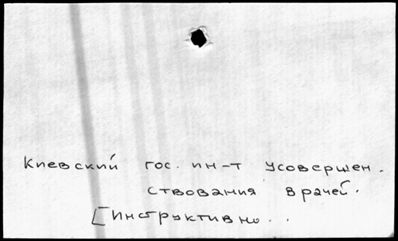 Киевский гос. ин-т усовершен.
ствования врачей.
[Инструктивно..